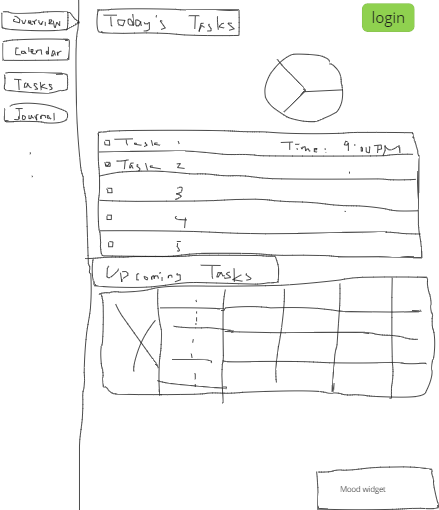 Overview
Calendar
Tasks
Journal
Today's Tasks
login
Task 1
Time: 9:00 PM
Task 2
3
4
5
Upcoming Tasks
Mood widget